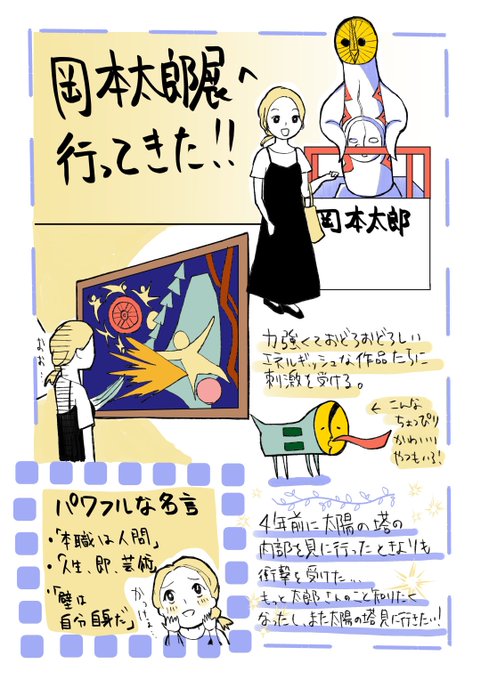 岡本太郎展へ
行ってきた!!
岡本太郎
おお…
力強くておどろおどろしい
エネルギッシュな作品たちに
刺激を受ける。
← こんな
ちょっぴり
かわいい
やつもいる!
パワフルな名言
・「本職は人間」
・「人生、即、芸術」
・「壁は
自分自身だ」
かっけぇ…
4年前に太陽の塔の
内部を見に行ったときよりも
衝撃を受けた…
もっと太郎さんのこと知りたく
なったし、また太陽の塔見に行きたい!